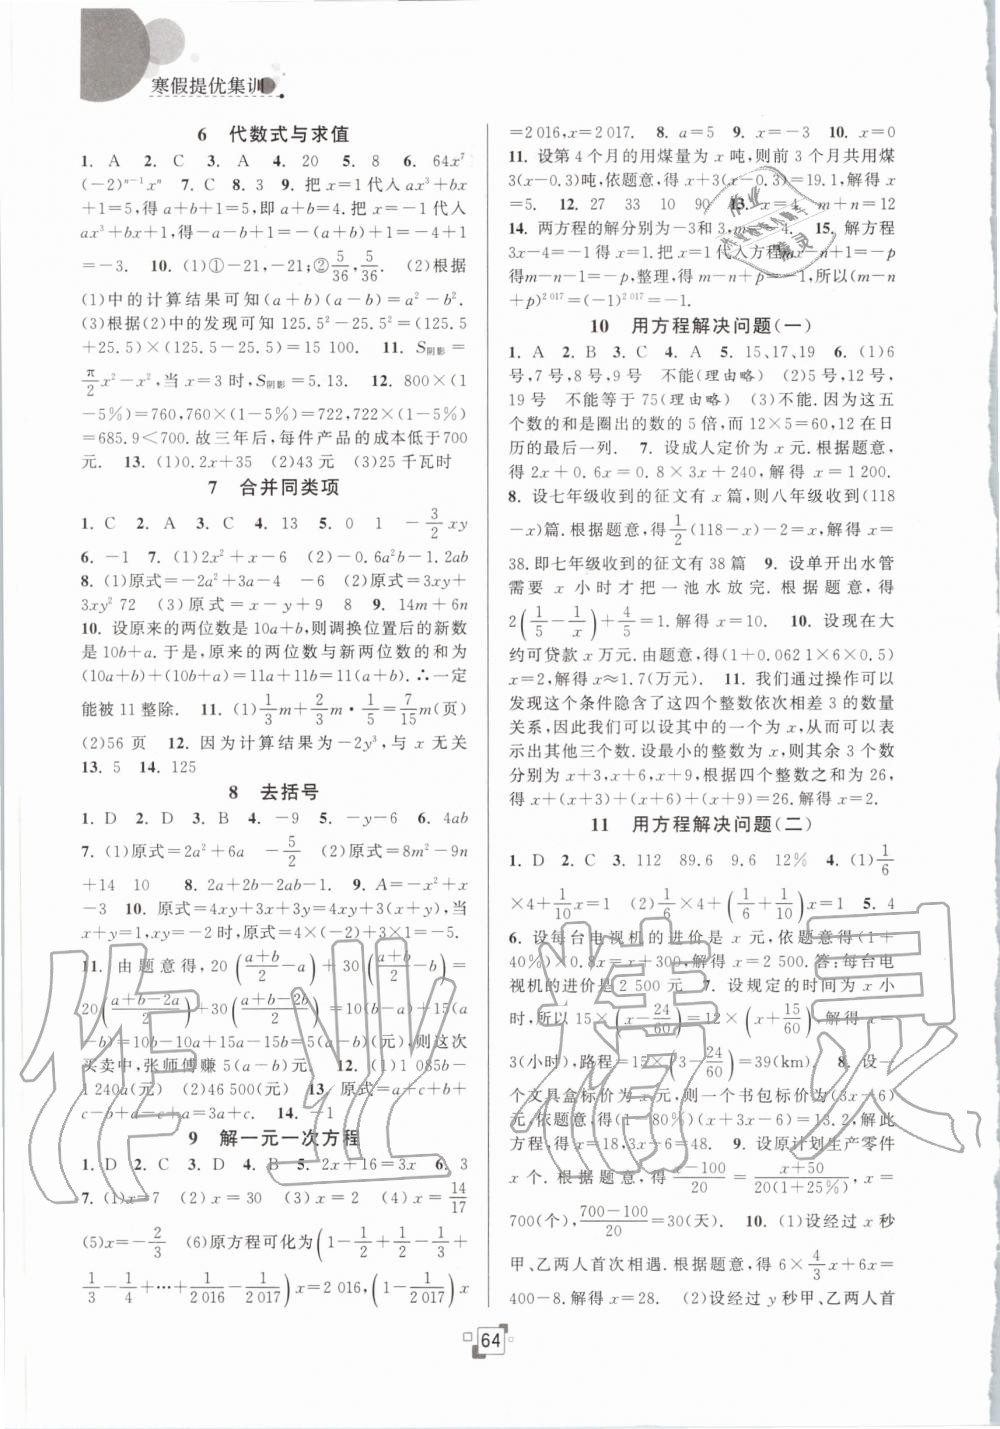 寒假提优集训
6 代数式与求值
1. A 2. C 3. A 4. 20 5. 8 6. 64x⁷
(-2)ⁿ⁻¹xⁿ 7. C 8. 3 9. 把 x=1 代入 ax³+bx
+1=5,得 a+b+1=5,即 a+b=4. 把 x=-1 代入
ax³+bx+1 得 -a-b+1=-(a+b)+1=-4+1
=-3. 10. (1)①-21,-21;②5/36,5/36. (2)根据
(1)中的计算结果可知(a+b)(a-b)=a²-b².
(3)根据(2)中的发现可知 125.5²-25.5²=(125.5
+25.5)×(125.5-25.5)=15 100. 11. S阴影=
π/2 x²-x²,当 x=3 时,S阴影=5.13. 12. 800×(1
-5%)=760,760×(1-5%)=722,722×(1-5%)
=685.9<700. 故三年后,每件产品的成本低于700
元. 13. (1)0.2x+35 (2)43 元 (3)25 千瓦时
7 合并同类项
1. C 2. A 3. C 4. 13 5. 0 1 -3/2 xy
6. -1 7. (1)2x²+x-6 (2)-0.6a²b-1.2ab
8. (1)原式=-2a²+3a-4 -6 (2)原式=3xy+
3xy² 72 (3)原式=x-y+9 8 9. 14m+6n
10. 设原来的两位数是 10a+b,则调换位置后的新数
是 10b+a. 于是,原来的两位数与新两位数的和为
(10a+b)+(10b+a)=11a+11b=11(a+b). ∴一定
能被 11 整除. 11. (1)1/3 m+2/3 m·1/5=7/15 m(页)
(2)56 页 12. 因为计算结果为-2y³,与 x 无关
13. 5 14. 125
8 去括号
1. D 2. D 3. B 4. -9 5. -y-6 6. 4ab
7. (1)原式=2a²+6a -5/2 (2)原式=8m²-9n
+14 10 8. 2a+2b-2ab 9. A=-x²+x
-3 10. 原式=4xy+3x+3y=4xy+3(x+y),当
x+y=1,xy=-2 时,原式=4×(-2)+3×1=-5.
11. 由题意得,20((a+b)/2-a)+30((a+b)/2-b)=
20((a+b-2a)/2)+30((a+b-2b)/2)=10(b-a)+15(a
-b)=10b-10a+15a-15b=5(a-b)(元),则这次
买卖中,张师傅赚 5(a-b)元. 12. (1)1 085b-
1 240a(元) (2)46 500(元) 13. 原式=a+c+b+
c-b+a-c+a=3a+c. 14. -1
9 解一元一次方程
1. D 2. C 3. D 4. B 5. 2x+16=3x 6. 3
7. (1)x=7 (2)x=30 (3)x=2 (4)x=14/17
(5)x=-2/3 (6)原方程可化为(1-1/2+1/2-1/3+
1/3-1/4+…+1/2 016-1/2 017)x=2 016,(1-1/2 017)x
=2 016,x=2 017. 8. a=5 9. x=-3 10. x=0
11. 设第 4 个月的用煤量为 x 吨,则前 3 个月共用煤
3(x-0.3)吨,依题意,得 x+3(x-0.3)=19.1,解得 x
=5. 12. 27 33 10 90 13. x=4 m+n=12
14. 两方程的解分别为-3和3,m=4. 15. 解方程
3x-4=-1 得 x=1. 把 x=1 代入方程 mx-n=-p
得 m-n=-p,整理,得 m-n+p=-1,所以(m-n
+p)²⁰¹⁷=(-1)²⁰¹⁷=-1.
10 用方程解决问题(一)
1. A 2. B 3. C 4. A 5. 15、17、19 6. (1)6
号,7号,8号,13号 不能(理由略) (2)5号,12号,
19号 不能等于 75(理由略) (3)不能. 因为这五
个数的和是圈出的数的 5 倍,而 12×5=60,12 在日
历的最后一列. 7. 设成人定价为 x 元. 根据题意,
得 2x+0.6x=0.8×3x+240,解得 x=1 200.
8. 设七年级收到的征文有 x 篇,则八年级收到(118
-x)篇. 根据题意,得1/2(118-x)-2=x,解得 x=
38. 即七年级收到的征文有 38 篇 9. 设单开出水管
需要 x 小时才把一池水放完. 根据题意,得
2(1/5-1/x)+4/5=1. 解得 x=10. 10. 设现在大
约可贷款 x 万元. 由题意,得(1+0.062 1×6×0.5)
x=2,解得 x≈1.7(万元). 11. 我们通过操作可以
发现这个条件隐含了这四个整数依次相差 3 的数量
关系,因此我们可以设其中的一个为 x,从而可以表
示出其他三个数. 设最小的整数为 x,则其余 3 个数
分别为 x+3,x+6,x+9,根据四个整数之和为 26,
得 x+(x+3)+(x+6)+(x+9)=26. 解得 x=2.
11 用方程解决问题(二)
1. D 2. C 3. 112 89.6 9.6 12% 4. (1)1/6
×4+1/10 x=1 (2)1/6×4+(1/6+1/10)x=1 5. 4
6. 设每台电视机的进价是 x 元,依题意得(1+
40%)×0.8x=x+300,解得 x=2 500. 答:每台电
视机的进价是 2 500 元 7. 设规定的时间为 x 小
时,所以 15×(x-24/60)=12×(x+15/60),解得 x=
3(小时),路程=15×(3-24/60)=39(km). 8. 设一
个文具盒标价为 x 元,则一个书包标价为(3x-6)
元,依题意,得(1-80%)(x+3x-6)=13.2,解此方
程,得 x=18,3x-6=48. 9. 设原计划生产零件
x 个. 根据题意,得(x-100)/20=(x+50)/20(1+25%),所以 x=
700(个),(700-100)/20=30(天). 10. (1)设经过 x 秒
甲、乙两人首次相遇. 根据题意,得 6×4/3 x+6x=
400-8. 解得 x=28. (2)设经过 y 秒甲、乙两人首
64
作业精灵